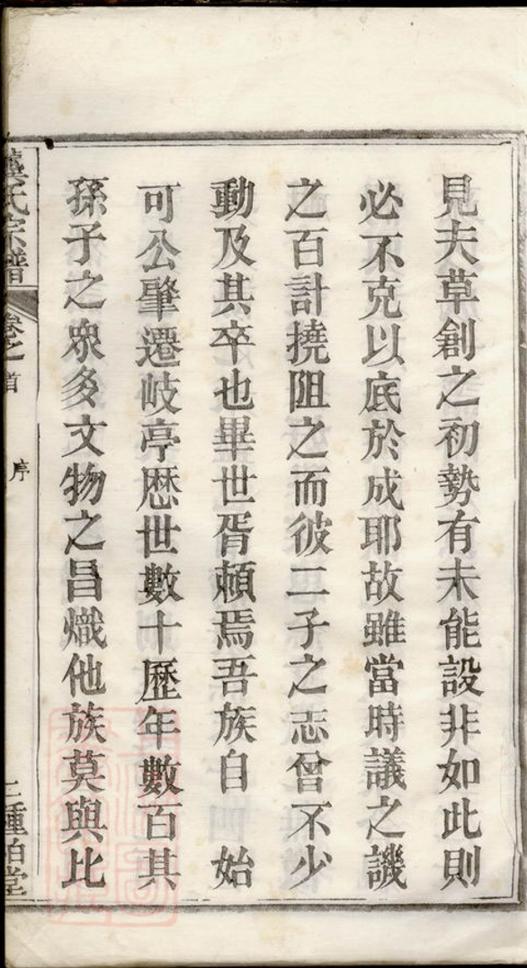 見夫草創之初勢有未能設非如此則
必不克以底於成耶故雖當時議之譏
之百計撓阻之而彼二子之志曾不少
動及其卒也畢世胥頼焉吾族自 始
可公肇遷岐亭歴世數十歷年數百其
孫子之眾多文物之昌熾他族莫與比
氏宗譜
卷之首
序
種柏堂